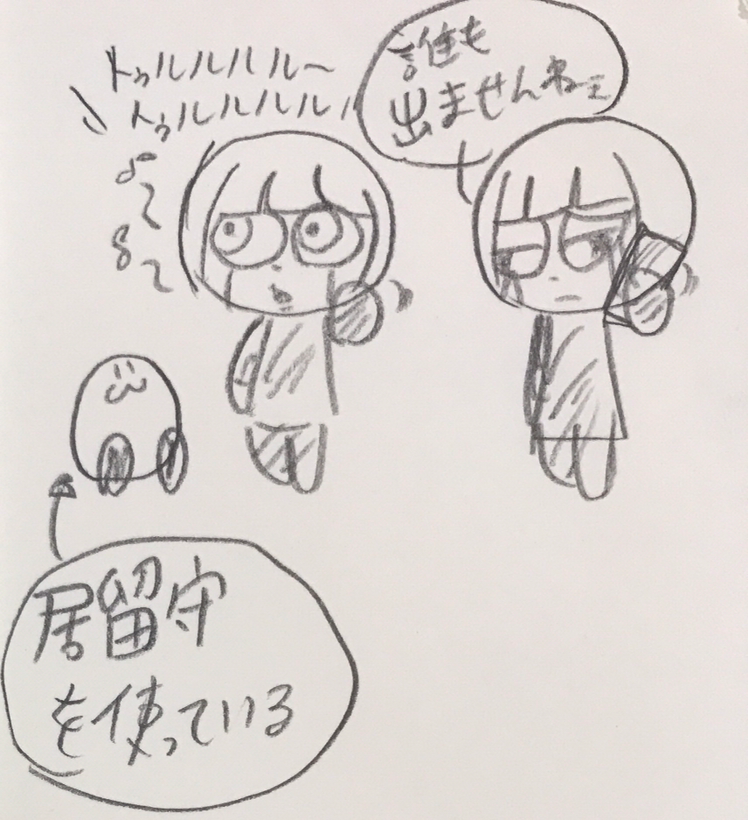 トゥルルルルル～
トゥルルルルルル
誰も
出ませんねェ
居留守
を使っている